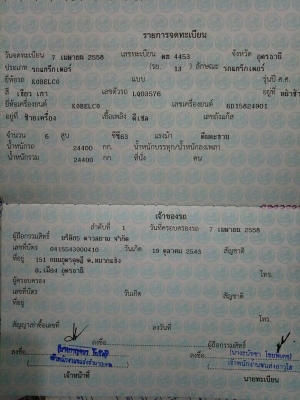 รายการจดทะเบียน
วันจดทะเบียน 7 เมษายน 2558 เลขทะเบียน ตธ 4453 จังหวัด อุดรธานี
ประเภท รถแทร็กเตอร์ (รย. 13 ) ลักษณะ รถแทร็กเตอร์
ยี่ห้อรถ KOBELCO แบบ รุ่นปี ค.ศ.
สี เขียว เทา เลขตัวรถ LQ03576 อยู่ที่
ยี่ห้อเครื่องยนต์ KOBELCO เลขเครื่องยนต์ 6D15824901
อยู่ที่ ซ้ายเครื่อง เชื้อเพลิง ดีเซล เลขถังแก๊ส
จำนวน 6 สูบ ซีซี แรงม้า ตีนตะขาบ
น้ำหนักรถ 24400 กก. น้ำหนักบรรทุก/น้ำหนักลงเพลา
น้ำหนักรวม 24400 กก. ที่นั่ง คน
เจ้าของรถ
ลำดับที่ 1 วันที่ครอบครองรถ 7 เมษายน 2558
ผู้ถือกรรมสิทธิ์ บริษัท ดาวสยาม จำกัด
เลขที่บัตร 0415543000410 วันเกิด 19 ตุลาคม 2543 สัญชาติ
ที่อยู่ 151 ถนนอุดรดุษฎี ต.หมากแข้ง
อ.เมือง อุดรธานี โทร.
ผู้ครอบครอง
เลขที่บัตร วันเกิด สัญชาติ
ที่อยู่ โทร.
สัญญาเช่าซื้อเลขที่ ลงวันที่
ผู้ถือกรรมสิทธิ์
ลงชื่อ ลงชื่อ
เจ้าหน้าที่ นายทะเบียน